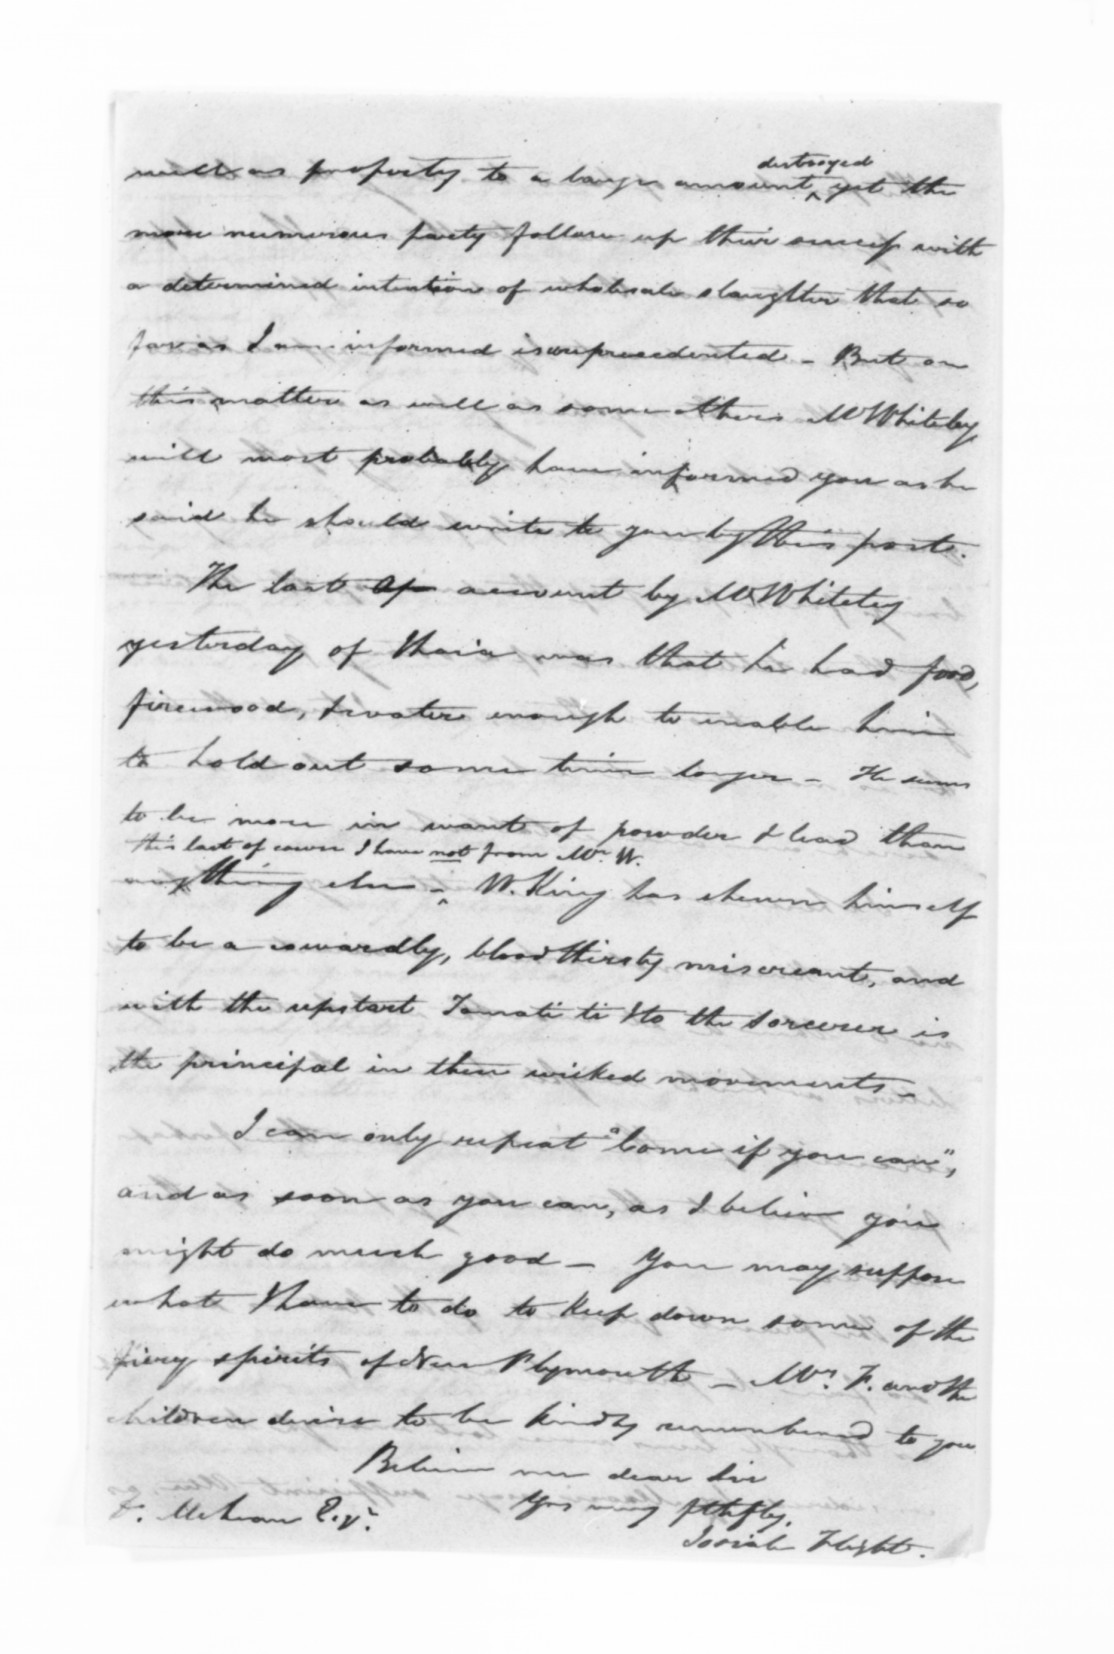 well as property to a large amount destroyed yet the
more numerous party follow up their success with
a determined intention of wholesale slaughter that so
far as I am informed is unprecedented - But on
this matter as well as some others Mr Whiteley
will most probably have informed you as he
said he should write to you by this post.
The last account by Mr Whiteley
yesterday of Ihaia was that he had food,
firewood, & water enough to enable him
to hold out some time longer - He seems
to be more in want of powder & lead than
this last of course I have not from Mr. W.
anything else - W. King has shewn himself
to be a cowardly, bloodthirsty miscreant, and
with the upstart Tamati ti Ito the Sorcerer is
the principal in these wicked movements -
I can only repeat "Come if you can",
and as soon as you can, as I believe you
might do much good - You may suppose
what I have to do to keep down some of the
fiery spirits of New Plymouth - Mrs. F. and the
children desire to be kindly remembered to you
Believe me dear Sir
Yrs very fthfly,
Josiah Flight.
D. McLean Esqr.